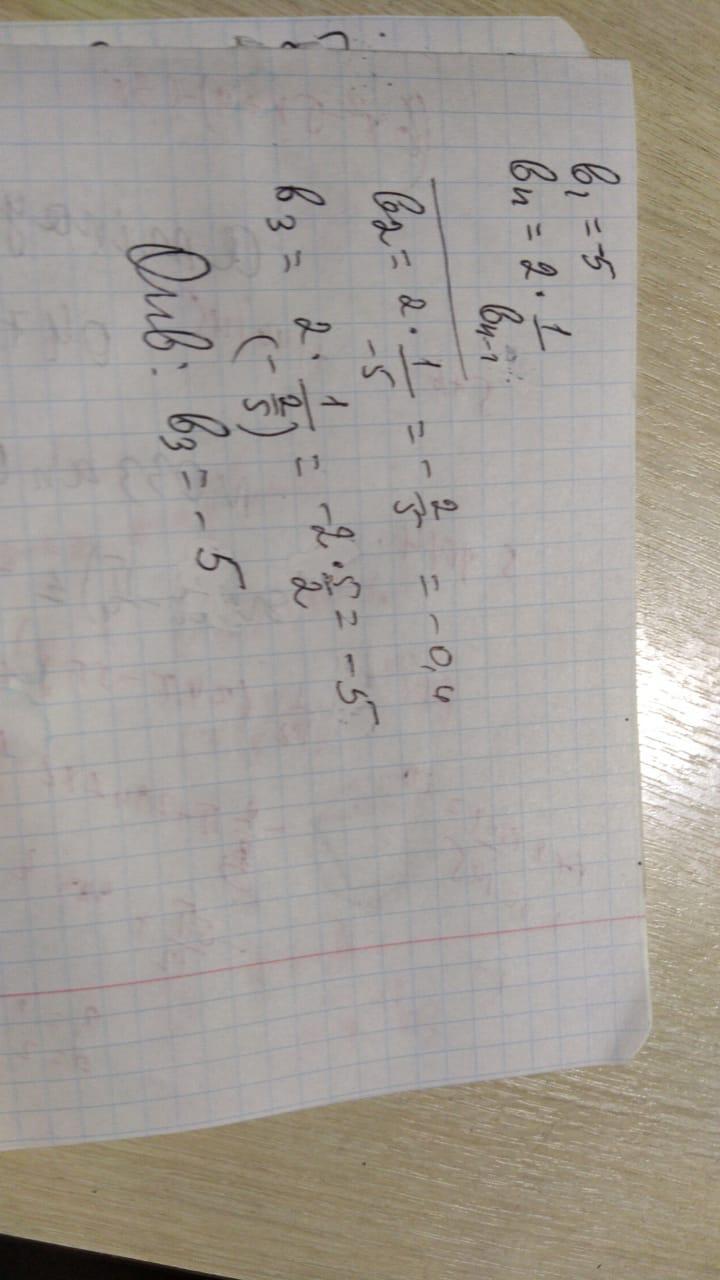 b₁ = -5
bₙ = 2 · 1/bₙ₋₁
b₂ = 2 · 1/-5 = - 2/5 = - 0,4
b₃ = 2 · 1/(- 2/5) = -2 · 5/2 = - 5
Отв: b₃ = - 5